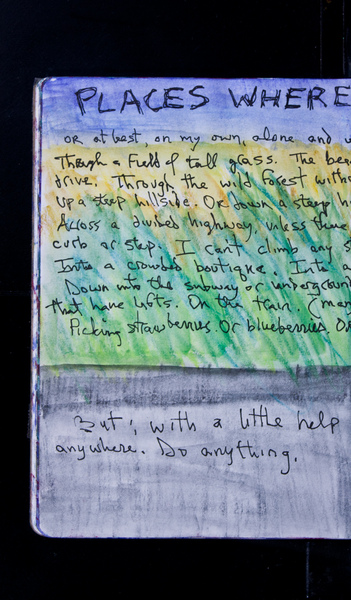 PLACES WHERE
or at best, on my own, alone and
Through a Field of tall grass. The
drive. Through the wild forest
Up a steep hillside. Or down a steep
Across a divided highway, unless there
curb or step. I can't climb any
Into a crowded boutique. Into a
Down into the subway or underground
that have lifts. On the train.
Picking strawberries. Or blueberries. Or
But, with a little help
anywhere. Do anything.